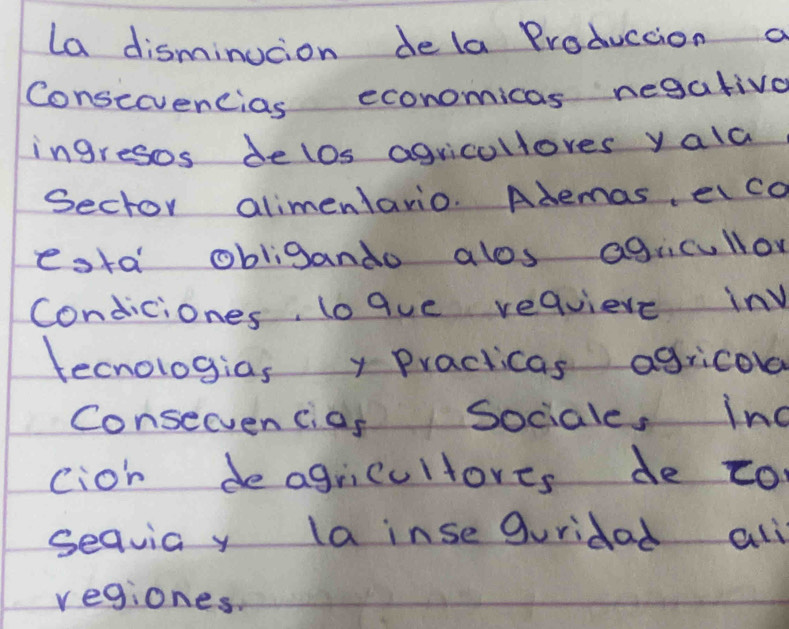 La disminucion de la Produccion a
Consecuencias economicas negativa
ingresos de los agricultores y ala
Sector alimentario. Ademas, el co
está obligando alos agricultor
condiciones, lo que requiere inv
tecnologias y Practicas agricola
Consecuencias Sociales inc
ción de agricultores de zo
sequia y la inseguridad ali
regiones.